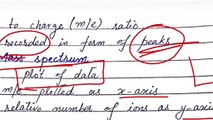 to change (m/e) ratio
recorded in form of peaks
mass spectrum
plot of data
m/e plotted as x-axis
relative number of ions as y-axis